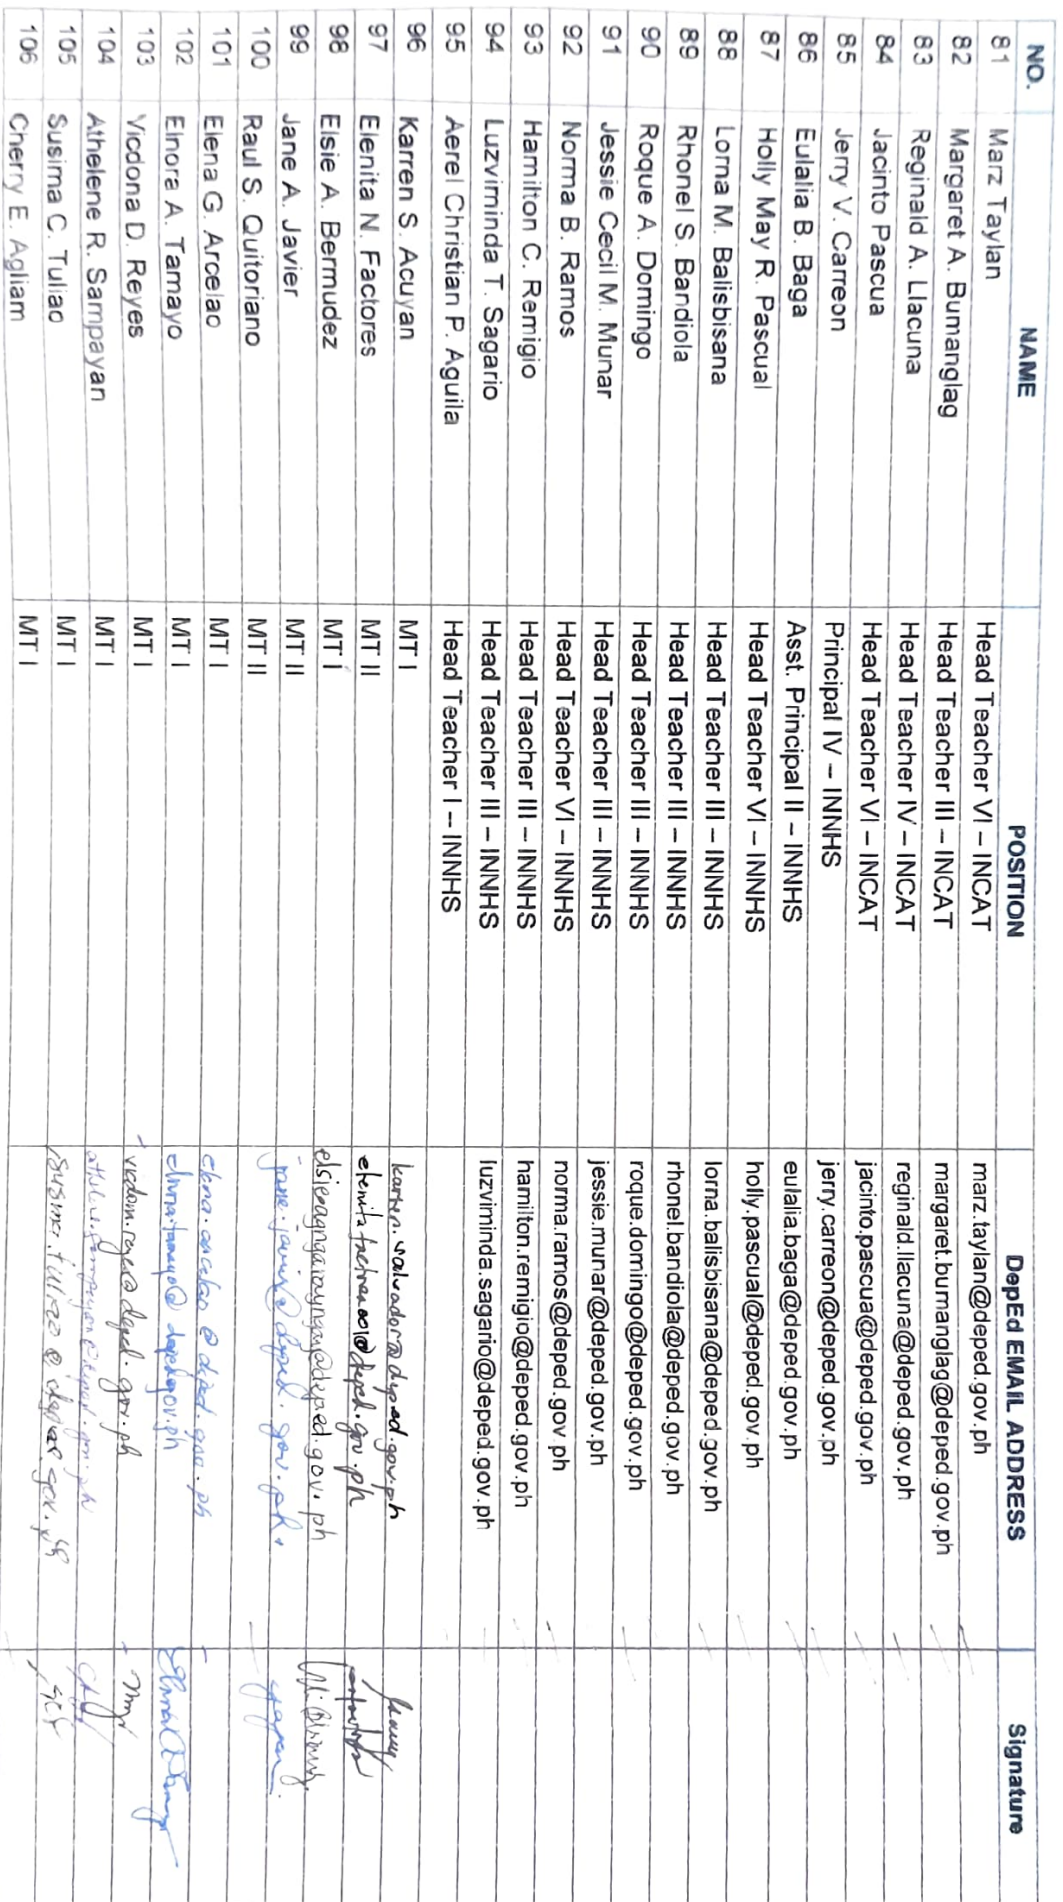 NO. NAME POSITION DepEd EMAIL ADDRESS Signature
81 Marz Taylan Head Teacher VI – INCAT marz.taylan@deped.gov.ph
82 Margaret A. Bumanglag Head Teacher III – INCAT margaret.bumanglag@deped.gov.ph
83 Reginald A. Llacuna Head Teacher IV – INCAT reginald.llacuna@deped.gov.ph
84 Jacinto Pascua Head Teacher VI – INCAT jacinto.pascua@deped.gov.ph
85 Jerry V. Carreon Principal IV – INNHS jerry.carreon@deped.gov.ph
86 Eulalia B. Baga Asst. Principal II – INNHS eulalia.baga@deped.gov.ph
87 Holly May R. Pascual Head Teacher VI – INNHS holly.pascual@deped.gov.ph
88 Lorna M. Balisbisana Head Teacher III – INNHS lorna.balisbisana@deped.gov.ph
89 Rhonel S. Bandiola Head Teacher III – INNHS rhonel.bandiola@deped.gov.ph
90 Roque A. Domingo Head Teacher III – INNHS roque.domingo@deped.gov.ph
91 Jessie Cecil M. Munar Head Teacher III – INNHS jessie.munar@deped.gov.ph
92 Norma B. Ramos Head Teacher VI – INNHS norma.ramos@deped.gov.ph
93 Hamilton C. Remigio Head Teacher III – INNHS hamilton.remigio@deped.gov.ph
94 Luzviminda T. Sagario Head Teacher III – INNHS luzviminda.sagario@deped.gov.ph
95 Aerel Christian P. Aguila Head Teacher I – INNHS
96 Karren S. Acuyan MT I karren.salvador@deped.gov.ph
97 Elenita N. Factores MT II
98 Elsie A. Bermudez MT I
99 Jane A. Javier MT II jane.javier@deped.gov.ph
100 Raul S. Quitoriano MT II
101 Elena G. Arcelao MT I elena.arcelao@deped.gov.ph
102 Elnora A. Tamayo MT I elnora.tamayo@deped.gov.ph
103 Vicdona D. Reyes MT I
104 Athelene R. Sampayan MT I
105 Susima C. Tuliao MT I
106 Cherry E. Agliam MT I